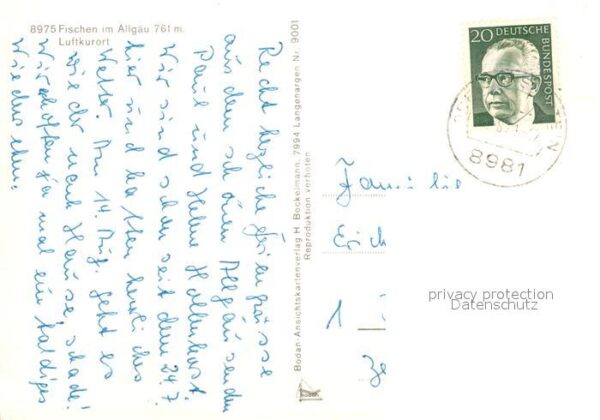 8975 Fischen im Allgäu 761 m.
Luftkurort
Recht herzliche Feriengrüsse
aus dem schönen Allgäu senden
Paul und Helene
Wir sind schon seit dem 24.7.
hier und hatten herrliches
Wetter. Am 14. Aug. geht es
wieder nach Hause schade!
Wir hoffen ja mal ein baldiges
Wiedersehen.
Bodan-Ansichtskartenverlag H. Bockelmann, 7994 Langenargen Nr. 9001
Reproduktion verboten
20 DEUTSCHE
BUNDESPOST
8981
Familie
Erich
1
privacy protection
Datenschutz